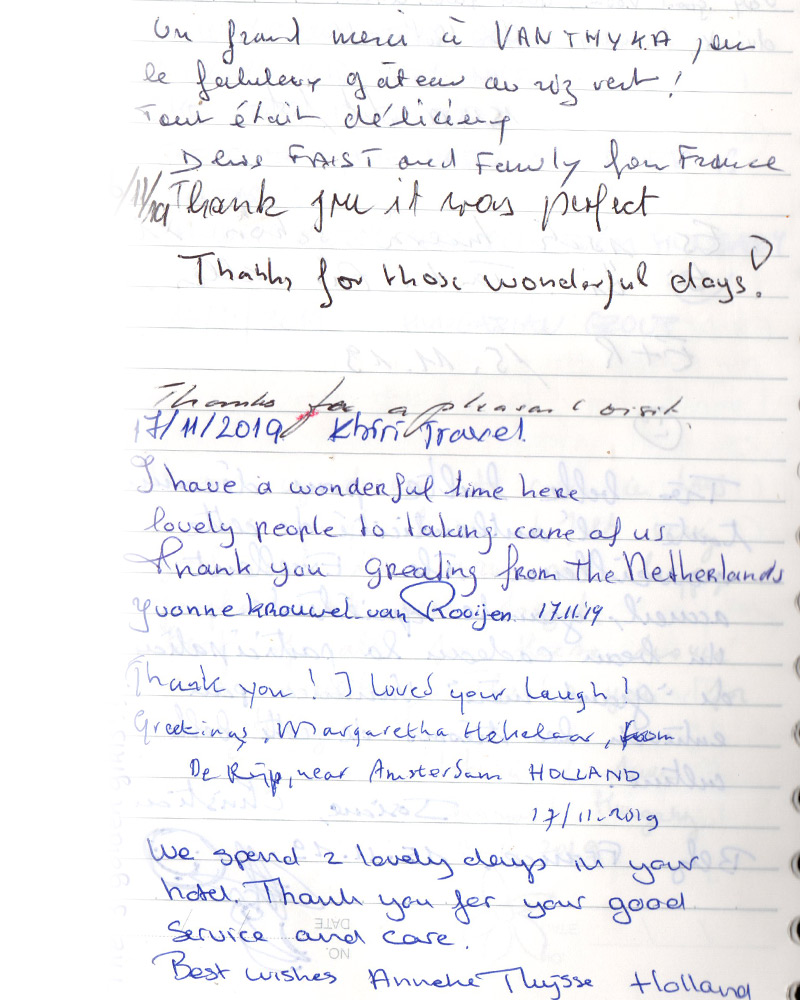 Un grand merci à VANTHYKA, pour
le fabuleux gâteau au riz vert !
Tout était délicieux
FAIST and Family from France
11/19
Thank you it was perfect
Thanks for those wonderful days!
Thanks for a pleasant visit.
17/11/2019 Khiri Travel
I have a wonderful time here
lovely people to taking care of us
Thank you greating from the Netherlands
Yvonne Krouwel-van Rooijen 17.11.'19
Thank you! I loved your laugh!
Greetings, Margaretha Hekelaar, from
De Rijp, near Amsterdam HOLLAND
17/11-2019
We spend 2 lovely days in your
hotel. Thank you for your good
service and care.
Best wishes Anneke Thijsse Holland